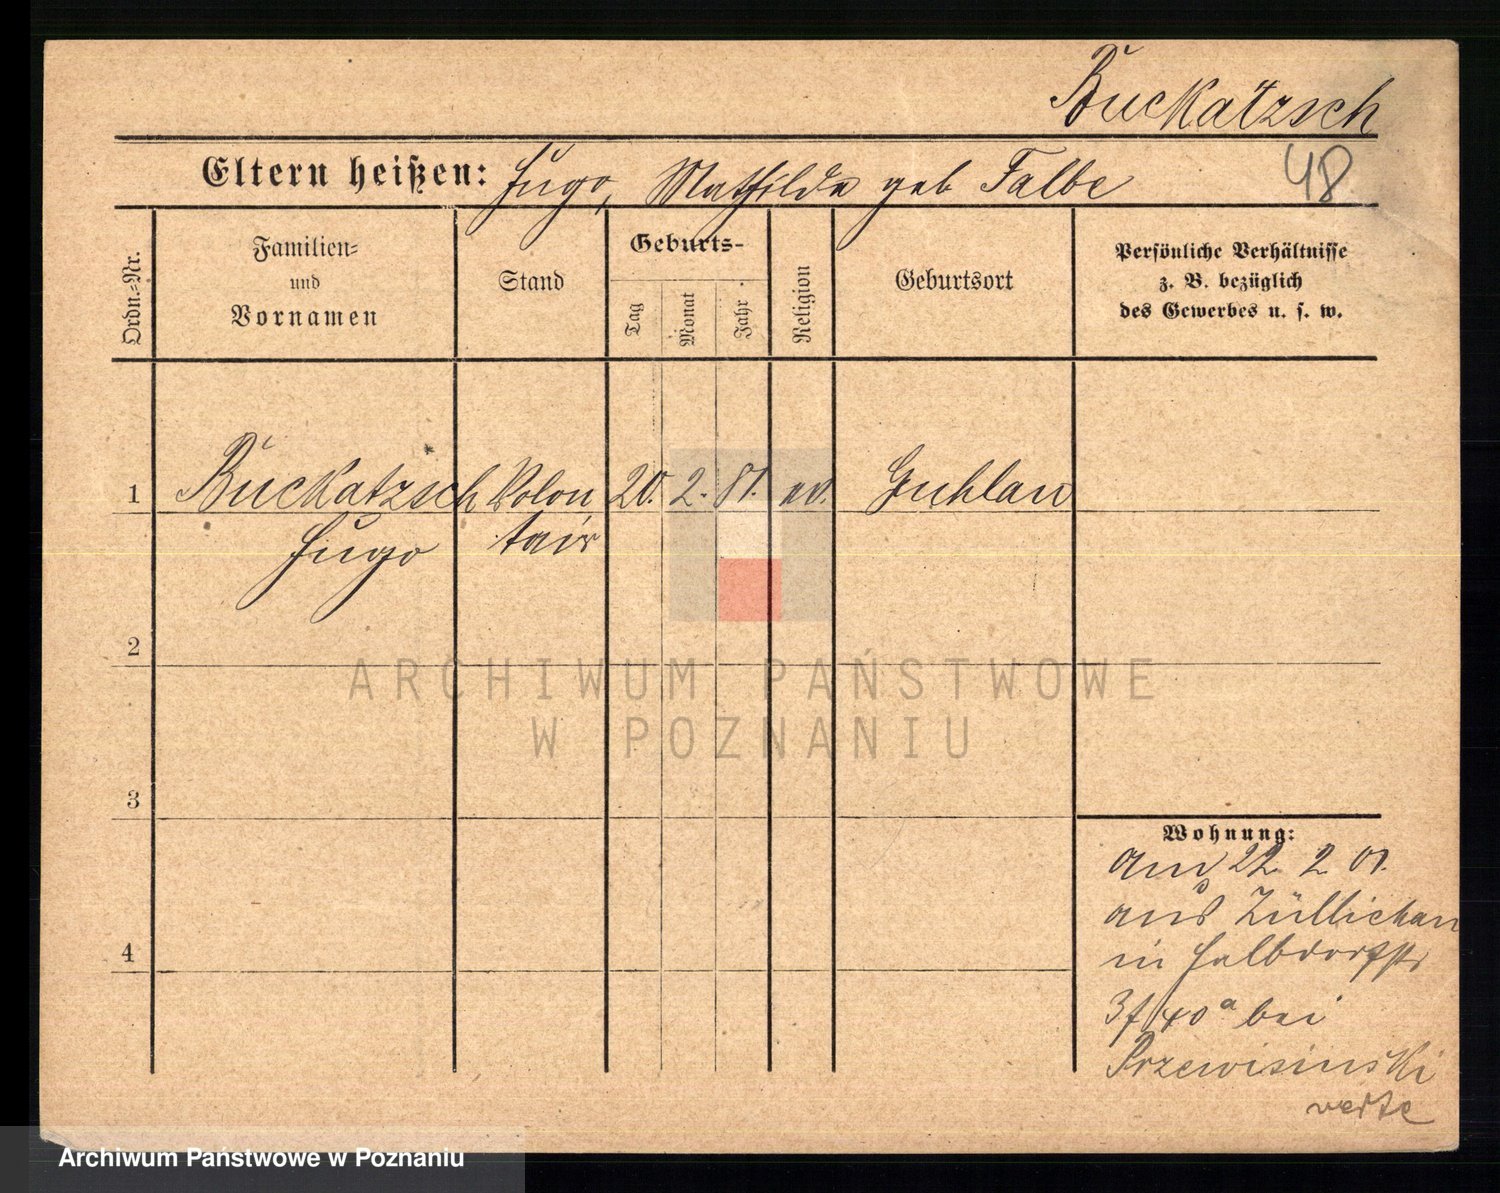 Buckatzsch
Eltern heißen: Hugo, Mathilde geb Falbe
48
Ordn.-Nr.
Familien- und Vornamen
Stand
Geburts-
Tag
Monat
Jahr
Religion
Geburtsort
Persönliche Verhältnisse
z. B. bezüglich
des Gewerbes u. s. w.
1 Buckatzsch Volon 20. 2. 81. ev. Guhlau
Hugo tair
2
3
4
Wohnung:
am 22. 2. 01.
aus Züllichau
in Halbdorfstr
bei
Przewisinski
verte
ARCHIWUM PAŃSTWOWE
W POZNANIU
Archiwum Państwowe w Poznaniu